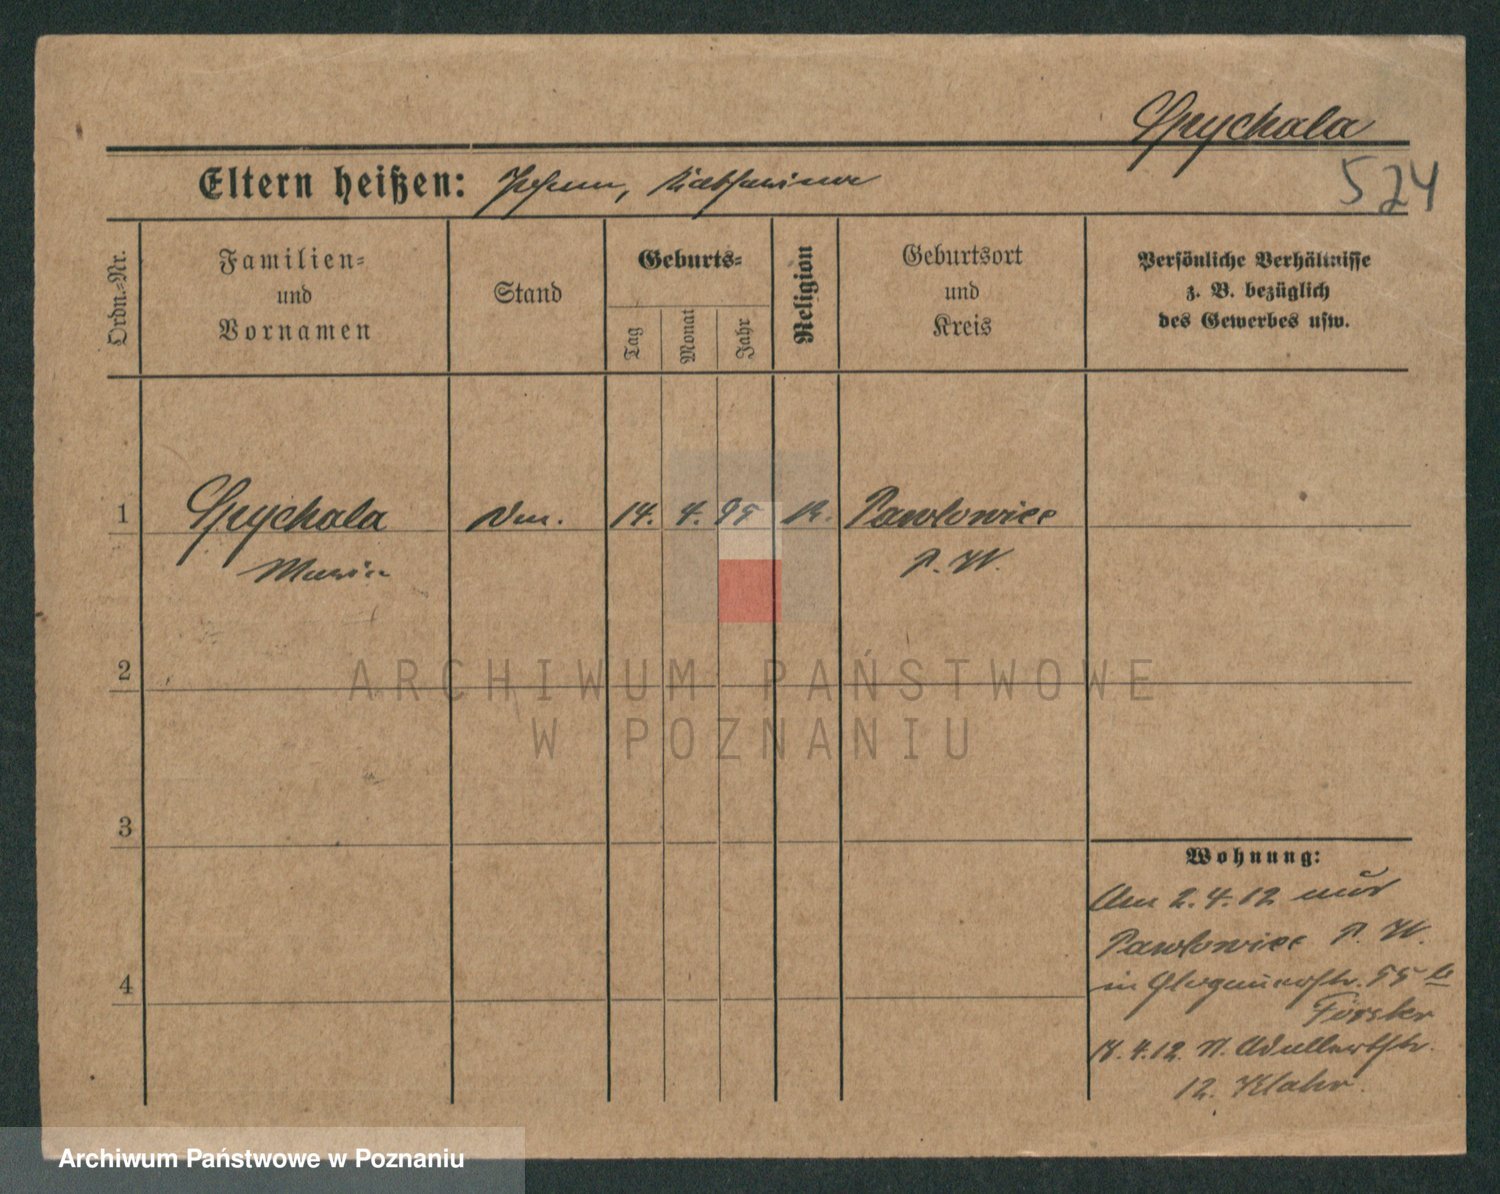 Spychala
524
Eltern heißen: Johann, Katharina
Ordn.-Nr.
Familien-
und
Vornamen
Stand
Geburts-
Tag
Monat
Jahr
Religion
Geburtsort
und
Kreis
Persönliche Verhältnisse
z. B. bezüglich
des Gewerbes usw.
1
Spychala
14. 4. 95
Pawlowice
Maria
P. W.
2
ARCHIWUM PAŃSTWOWE
W POZNANIU
3
Wohnung:
Am 2. 4. 12 aus
Pawlowice P. W.
4
in Glogauerstr. 55
Förster
18. 4. 12. N. Adalbertstr.
12. Klahr.
Archiwum Państwowe w Poznaniu